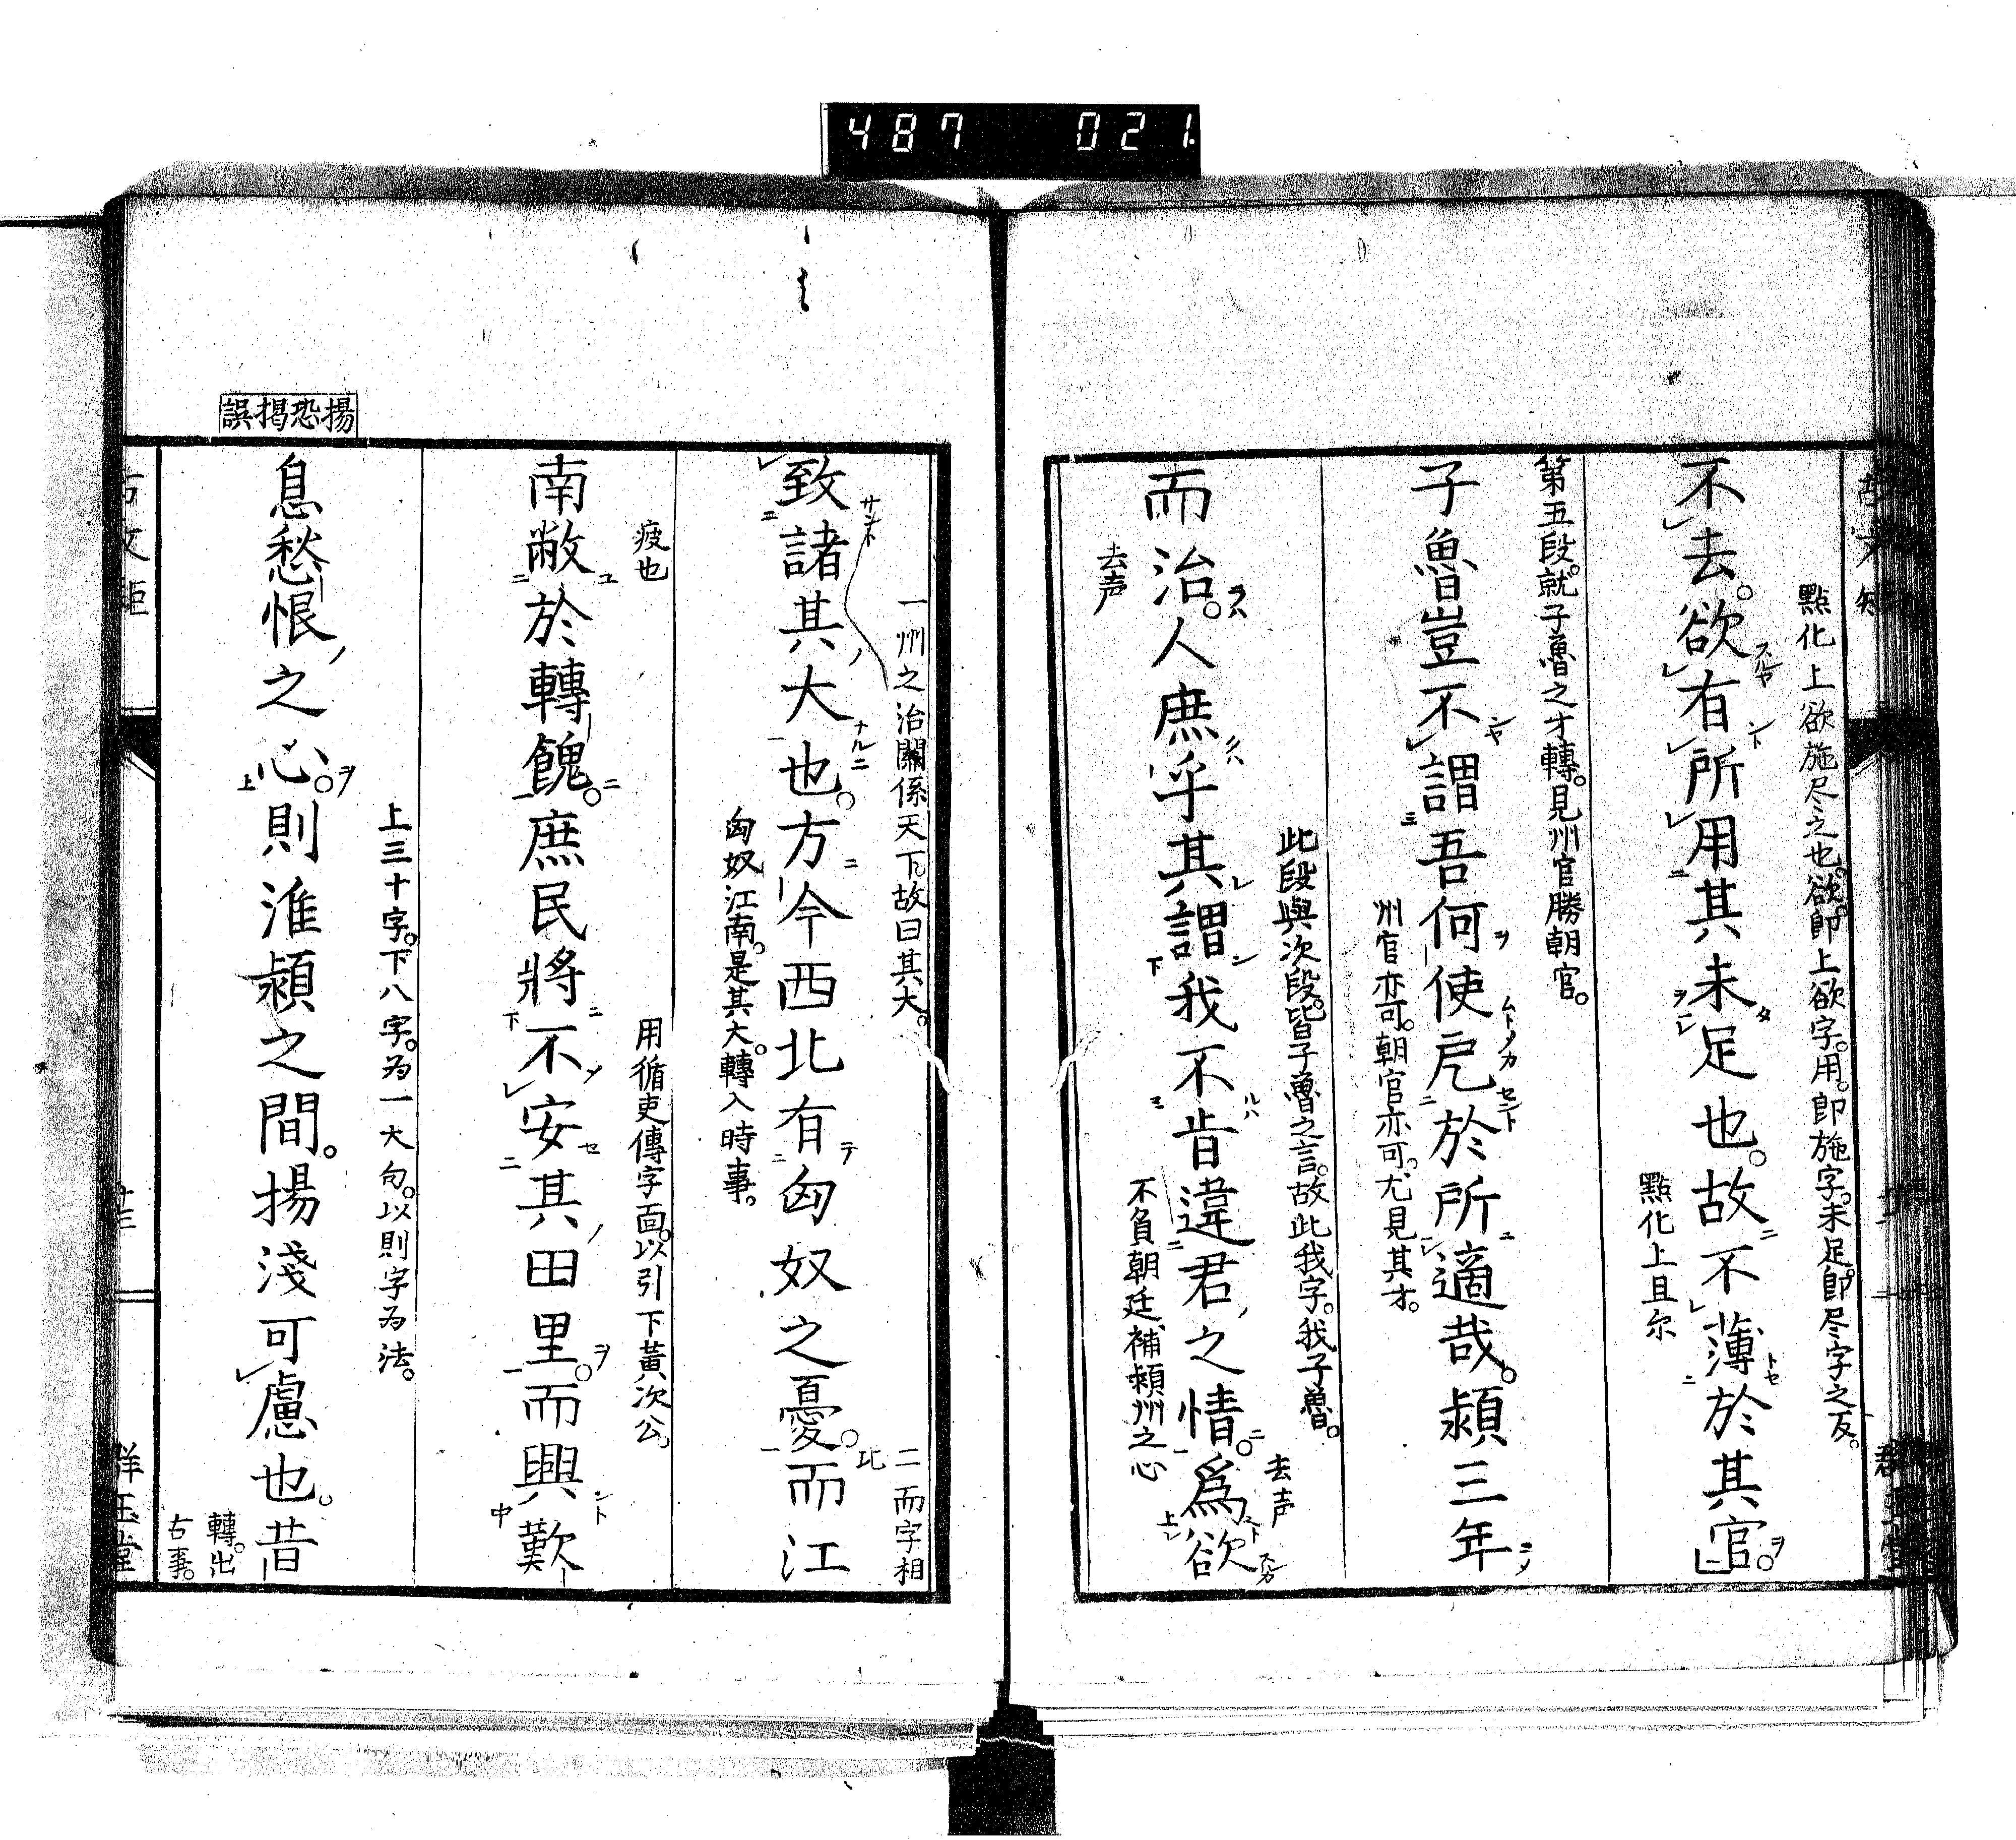 487 021
點化上欲施尽之也。欲。卽上欲字。用。卽施字。未足。卽尽字之反。
不去。欲有所用其未足也。故不薄於其官。
點化上且尔
第五段。就子魯之才轉。見州官勝朝官。
子魯豈不謂吾何使戹於所適哉。潁三年
州官亦可。朝官亦可。尤見其才。
此段與次段。皆子魯之言。故此我字。我子魯。
去声
而治。人庶乎其謂我不肯違君之情。爲欲
去声
不負朝廷、補潁州之心
一州之治關係天下。故曰其大。
二而字相比
致諸其大也。方今西北有匈奴之憂。而江
匈奴江南。是其大。轉入時事。
疲也
用循吏傳字面。以引下黃次公。
南敝於轉餽。庶民將不安其田里。而興歎
上三十字。下八字。为一大句。以則字为法。
揚恐揭誤
息愁恨之心。則淮潁之間。揚淺可慮也。昔
轉。出古事。